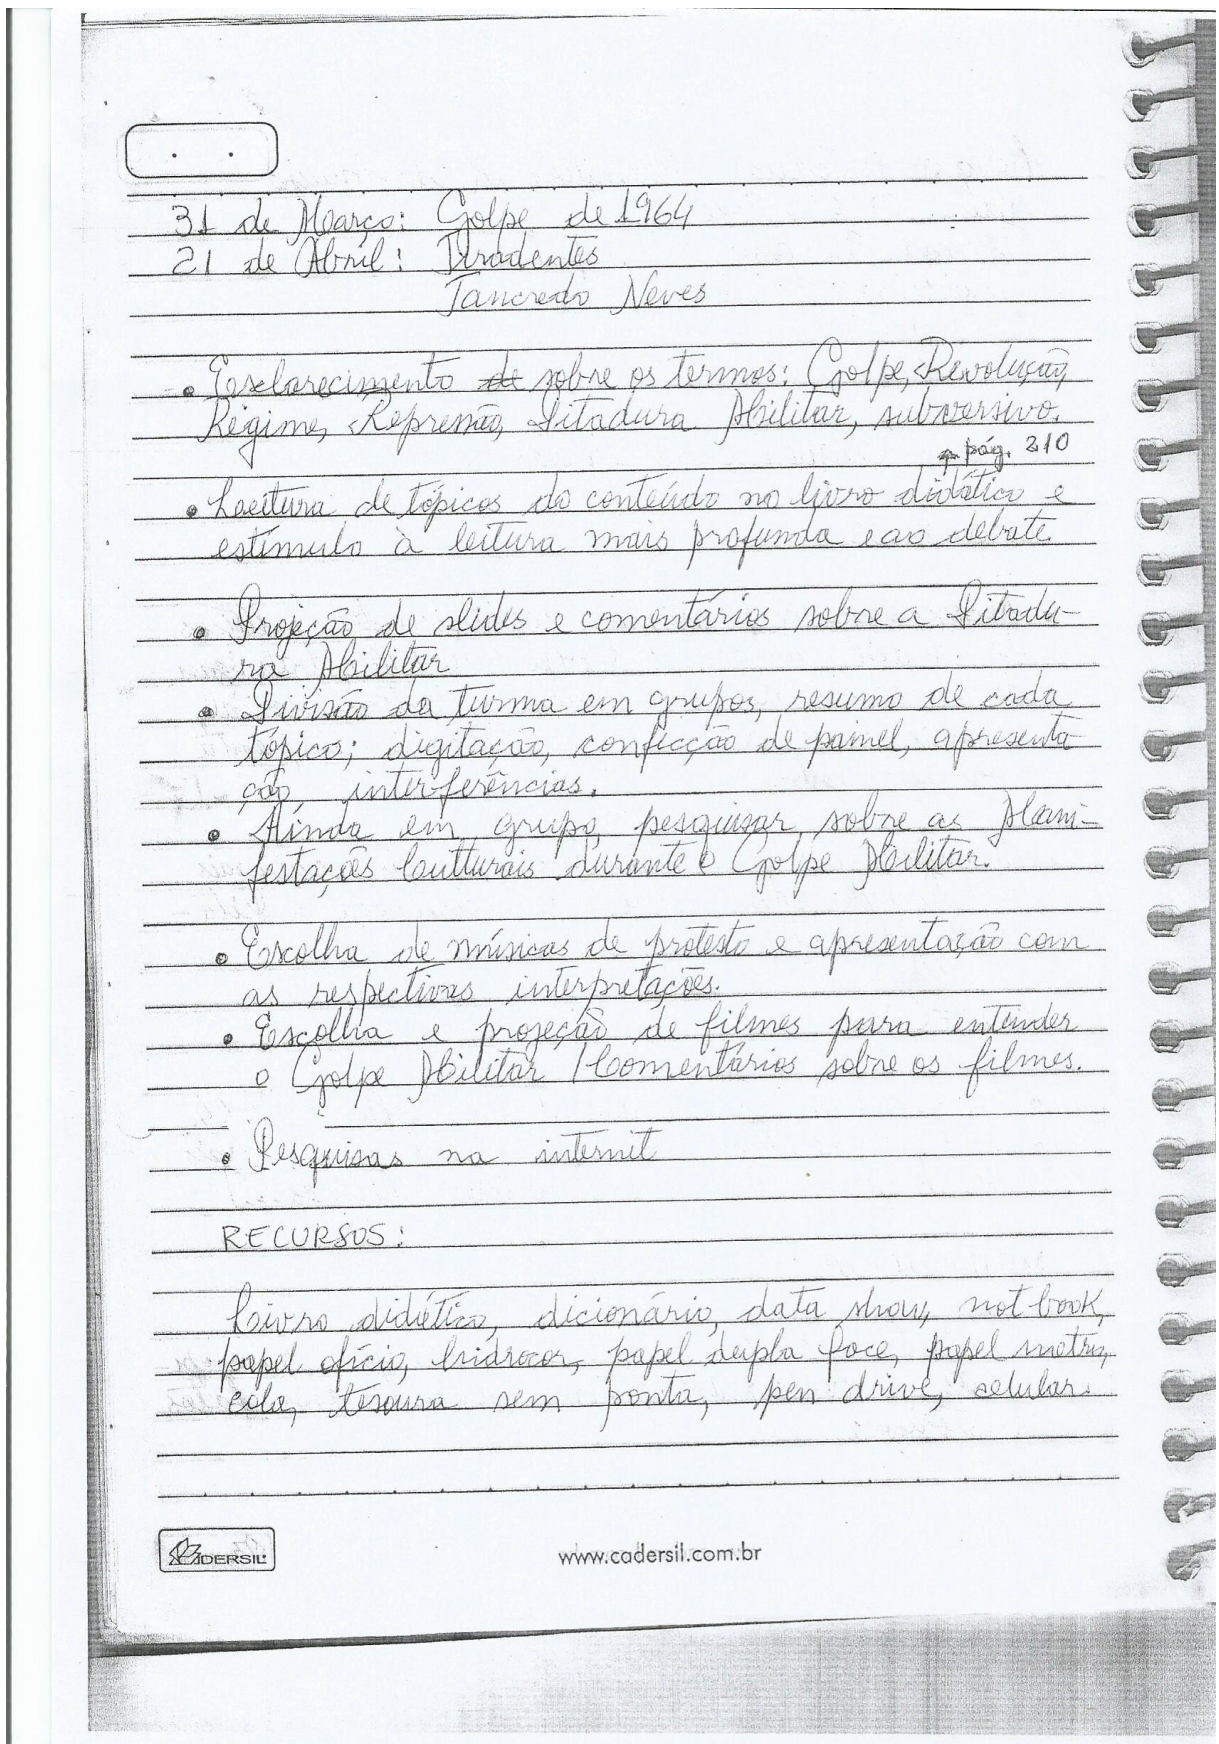 31 de Março: Golpe de 1964
21 de Abril: Tiradentes
Tancredo Neves
• Esclarecimento de sobre os termos: Golpe, Revolução,
Regime, Repressão, Ditadura Militar, subversivo.
↑ pág. 210
• Leitura de tópicos do conteúdo no livro didático e
estímulo à leitura mais profunda e ao debate.
• Projeção de slides e comentários sobre a Ditadu-
ra Militar
• Divisão da turma em grupos, resumo de cada
tópico; digitação, confecção de painel, apresenta
ção, interferências.
• Ainda em grupo, pesquisar sobre as Mani-
festações Culturais durante o Golpe Militar.
• Escolha de músicas de protesto e apresentação com
as respectivas interpretações.
• Escolha e projeção de filmes para entender
o Golpe Militar / Comentários sobre os filmes.
• Pesquisas na internit
RECURSOS:
Livro didático, dicionário, data show, not book,
papel ofício, hidrocor, papel dupla face, papel metro,
cola, tesoura sem ponta, pen drive, celular.
CADERSIL
www.cadersil.com.br